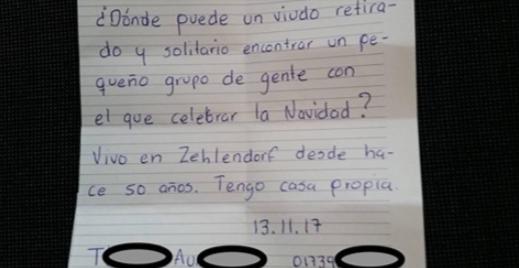 ¿Dónde puede un viudo retira-
do y solitario encontrar un pe-
queño grupo de gente con
el que celebrar la Navidad?
Vivo en Zehlendorf desde ha-
ce 50 años. Tengo casa propia.
13.11.17
T Au 01739